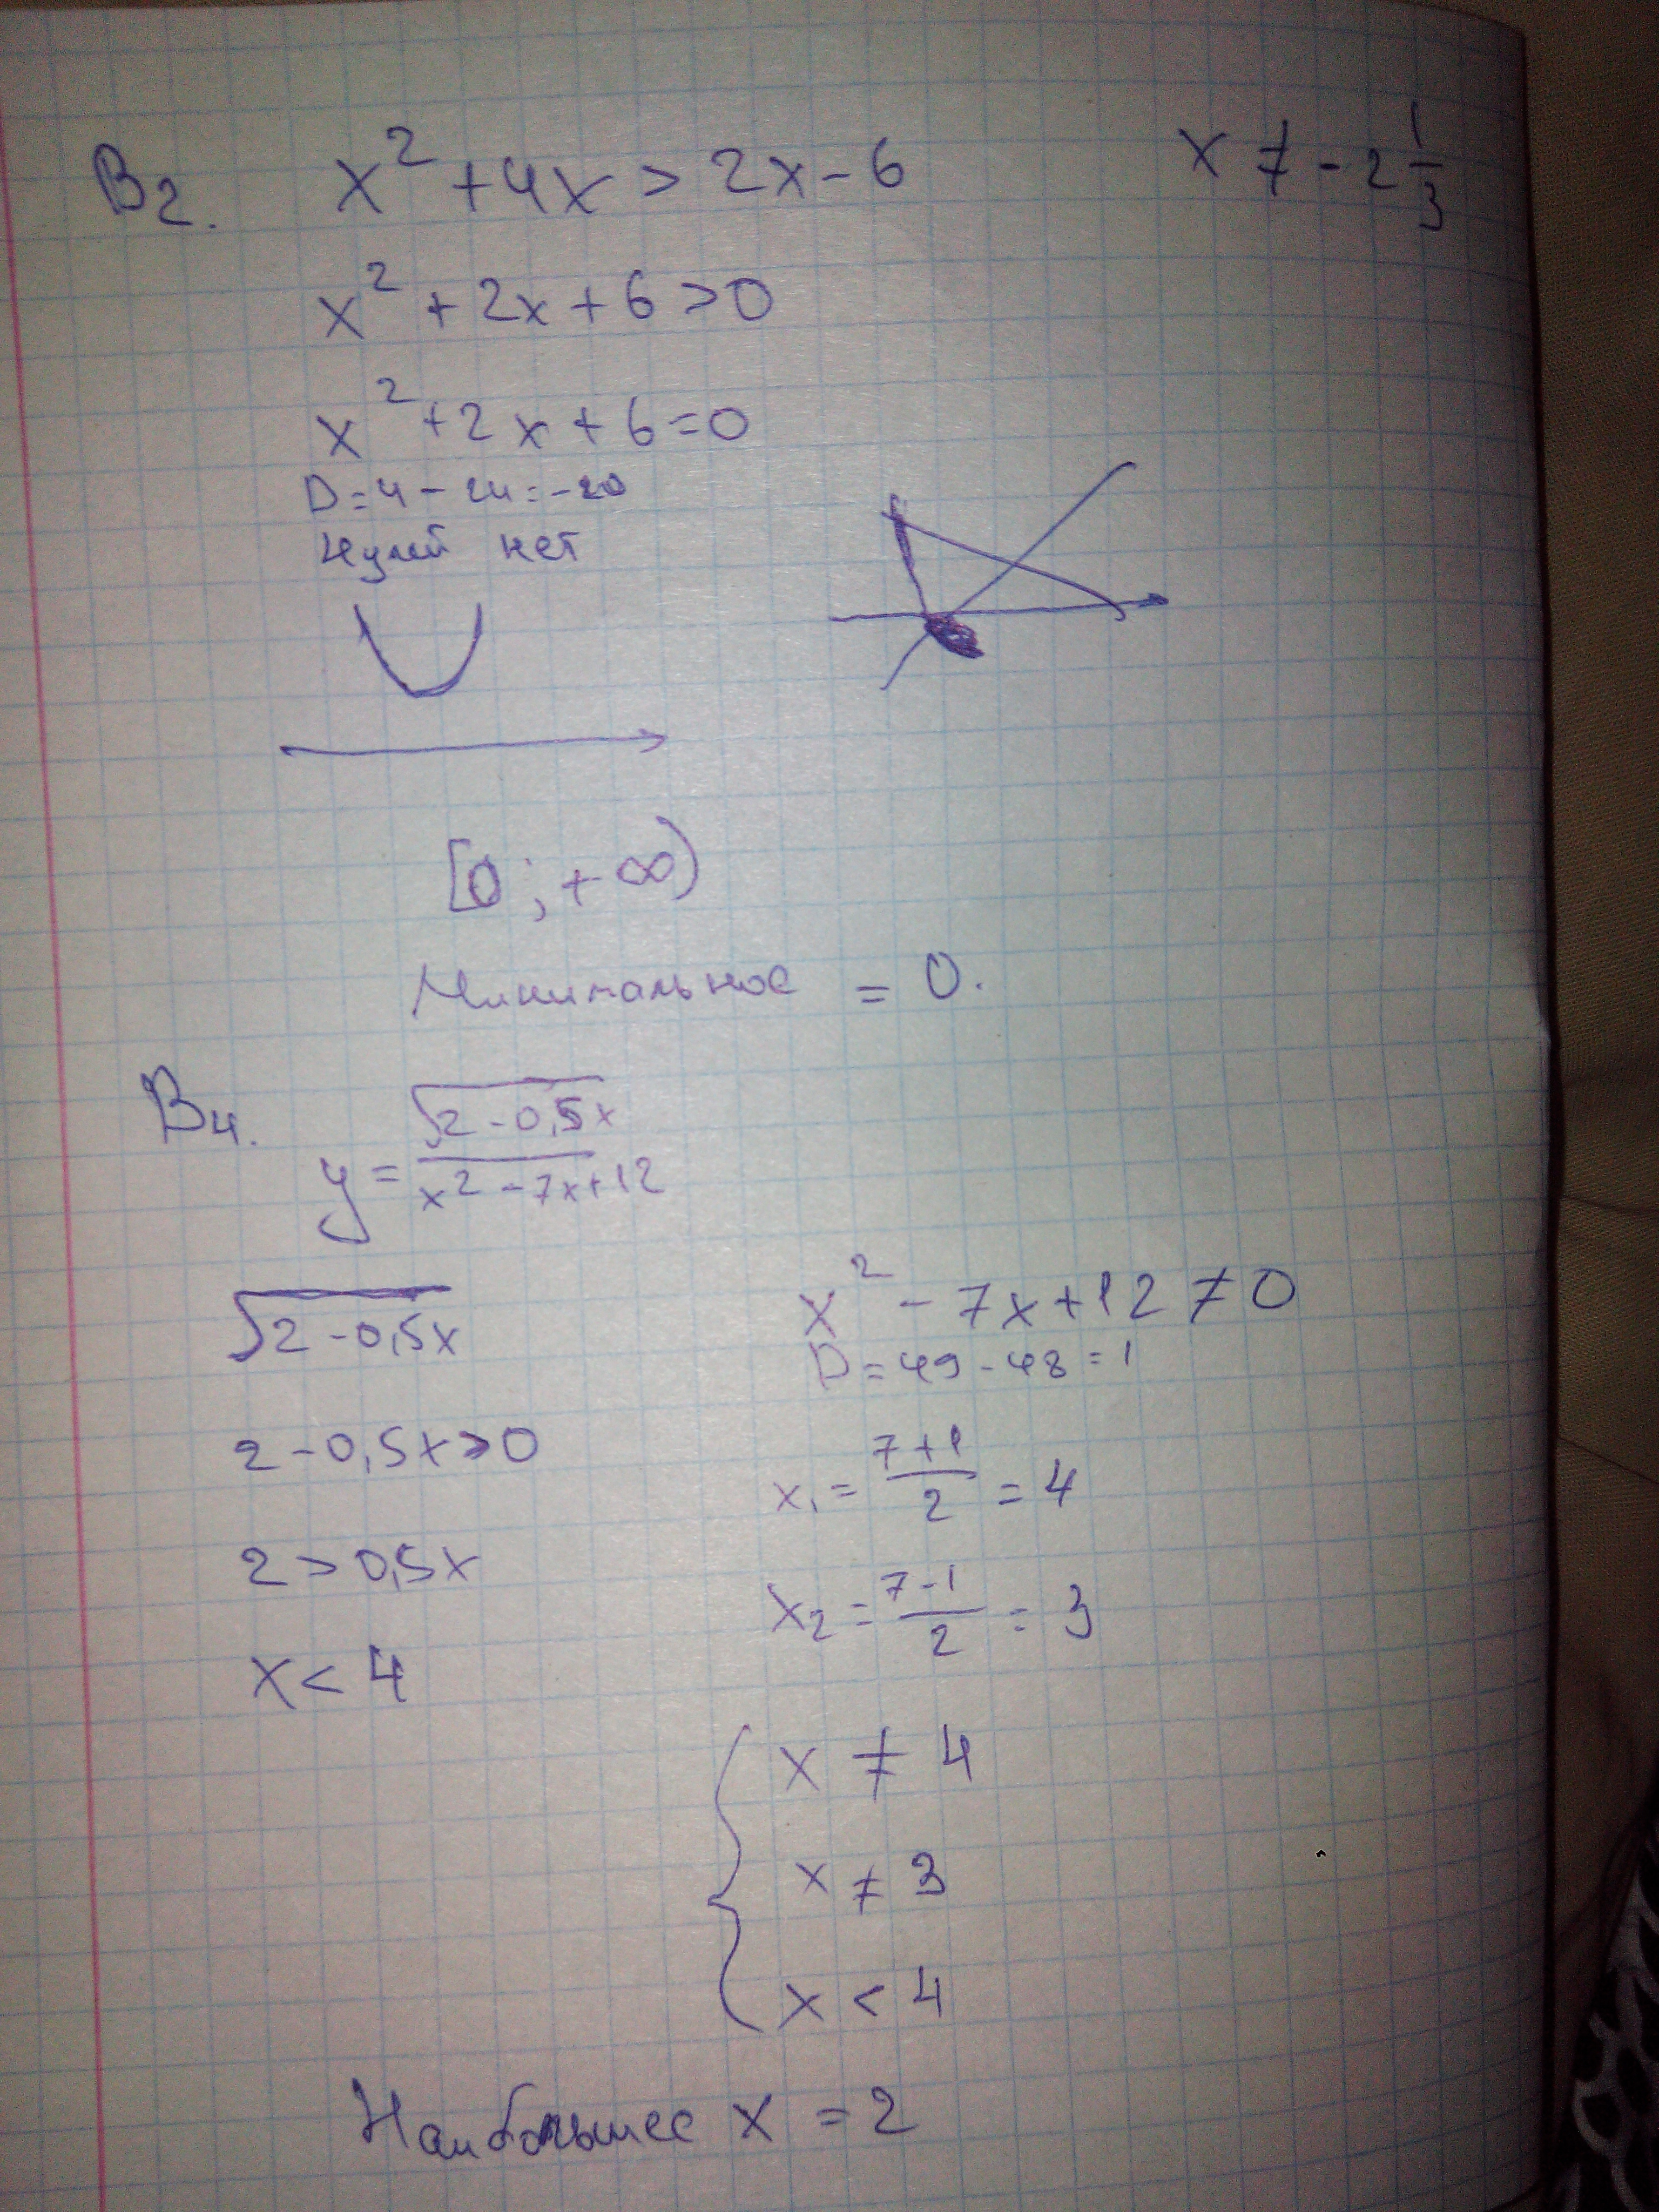 B2. x² + 4x > 2x - 6
x ≠ - 2 1/3
x² + 2x + 6 > 0
x² + 2x + 6 = 0
D = 4 - 24 = -20
Нулей нет
[0; +∞)
Минимальное = 0.
B4.
y = √(2 - 0,5x) / (x² - 7x + 12)
√(2 - 0,5x)
2 - 0,5x > 0
2 > 0,5x
x < 4
x² - 7x + 12 ≠ 0
D = 49 - 48 = 1
x₁ = (7 + 1)/2 = 4
x₂ = (7 - 1)/2 = 3
{ x ≠ 4
x ≠ 3
x < 4
Наибольшее x = 2